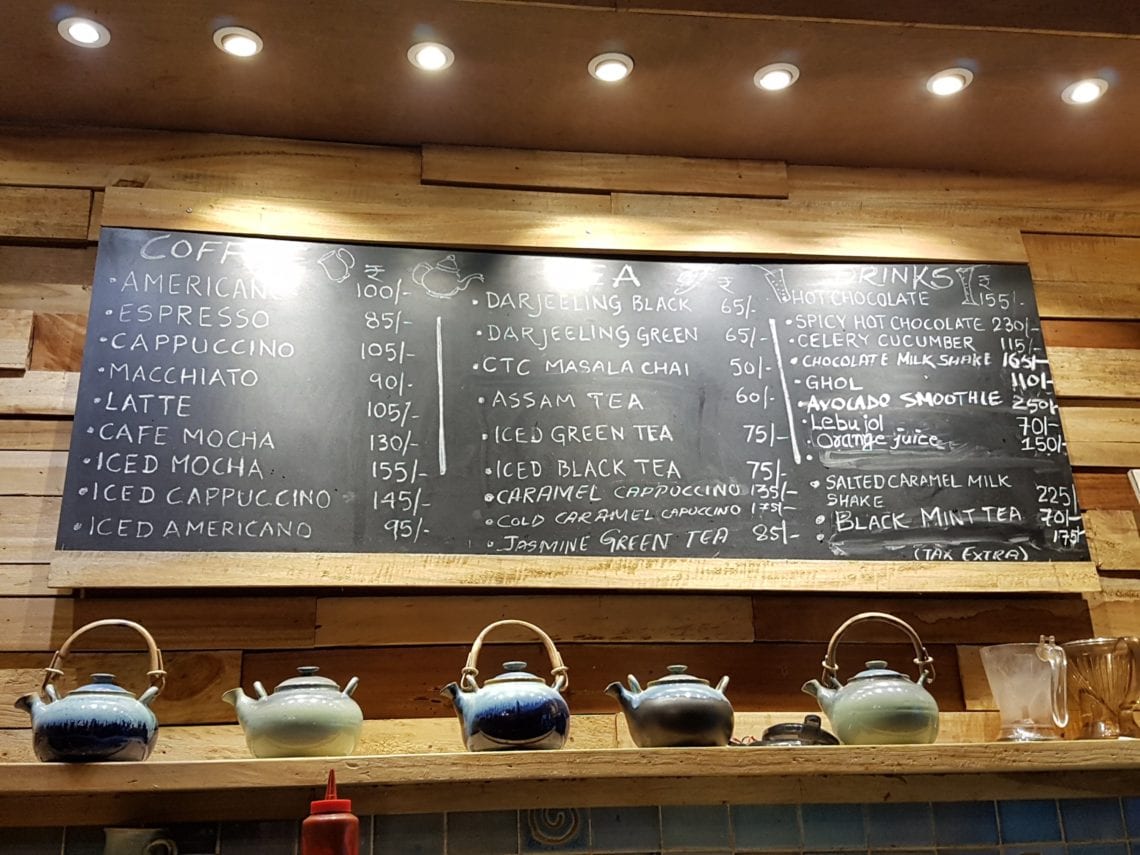 COFF ₹
•AMERICAN 100/-
•ESPRESSO 85/-
•CAPPUCCINO 105/-
•MACCHIATO 90/-
•LATTE 105/-
•CAFE MOCHA 130/-
•ICED MOCHA 155/-
•ICED CAPPUCCINO 145/-
•ICED AMERICANO 95/-
EA ₹
•DARJEELING BLACK 65/-
•DARJEELING GREEN 65/-
•CTC MASALA CHAI 50/-
•ASSAM TEA 60/-
•ICED GREEN TEA 75/-
•ICED BLACK TEA 75/-
•CARAMEL CAPPUCCINO 135/-
•COLD CARAMEL CAPUCCINO 175/-
•JASMINE GREEN TEA 85/-
DRINKS ₹
•HOT CHOCOLATE 155/-
•SPICY HOT CHOCOLATE 230/-
•CELERY CUCUMBER 115/-
•CHOCOLATE MILK SHAKE 165/-
•GHOL 110/-
•AVOCADO SMOOTHIE 250/-
•Lebu jol 70/-
•Orange juice 150/-
•SALTED CARAMEL MILK
SHAKE 225/
•BLACK MINT TEA 70/-
175/-
(TAX EXTRA)